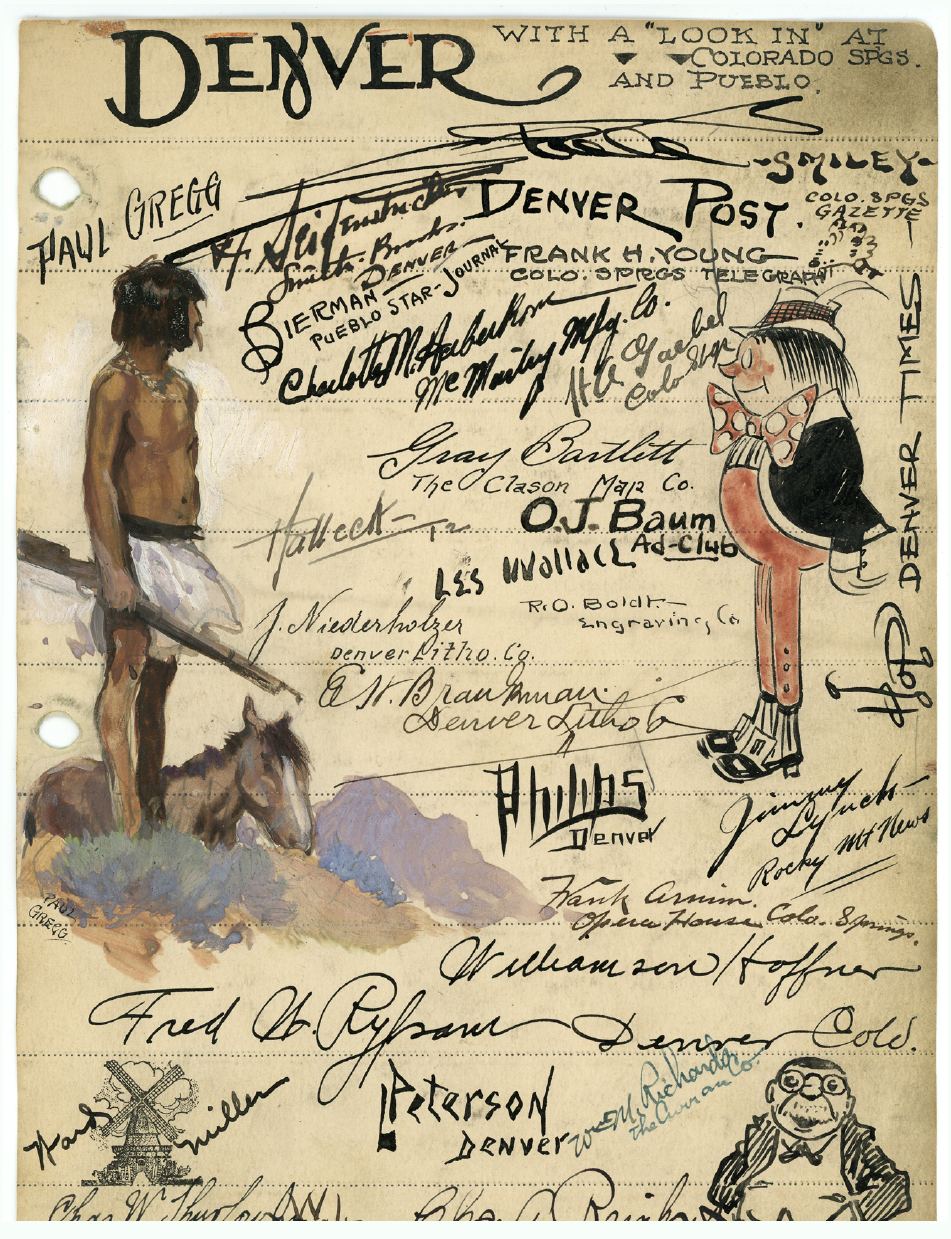 DENVER
WITH A "LOOK IN" AT
COLORADO SPGS.
AND PUEBLO.
-SMILEY-
COLO. SPGS
GAZETTE
PAUL GREGG
DENVER POST.
Smith-Brooks.
DENVER
FRANK H. YOUNG
COLO. SPRGS TELEGRAPH
BIERMAN
PUEBLO STAR-JOURNAL
Charlotte M.
Mfg. Co.
Colo Spgs
HOP DENVER TIMES
Gray Bartlett
The Clason Map Co.
Halleck
O.J. Baum
Ad-Club
LES WALLACE
R.O. Boldt
Engraving Co
J. Niederholzer
Denver Litho. Co.
Denver Litho Co
Philips
Denver
Jimmy
Lynch
Rocky Mt News
PAUL
GREGG
Frank
Opera House Colo. Springs.
Williamson Hoffner
Fred W.
Denver Colo.
Ward Miller
Peterson
DENVER
Wm M. Richards
The Curran Co.
Chas W.
Chas